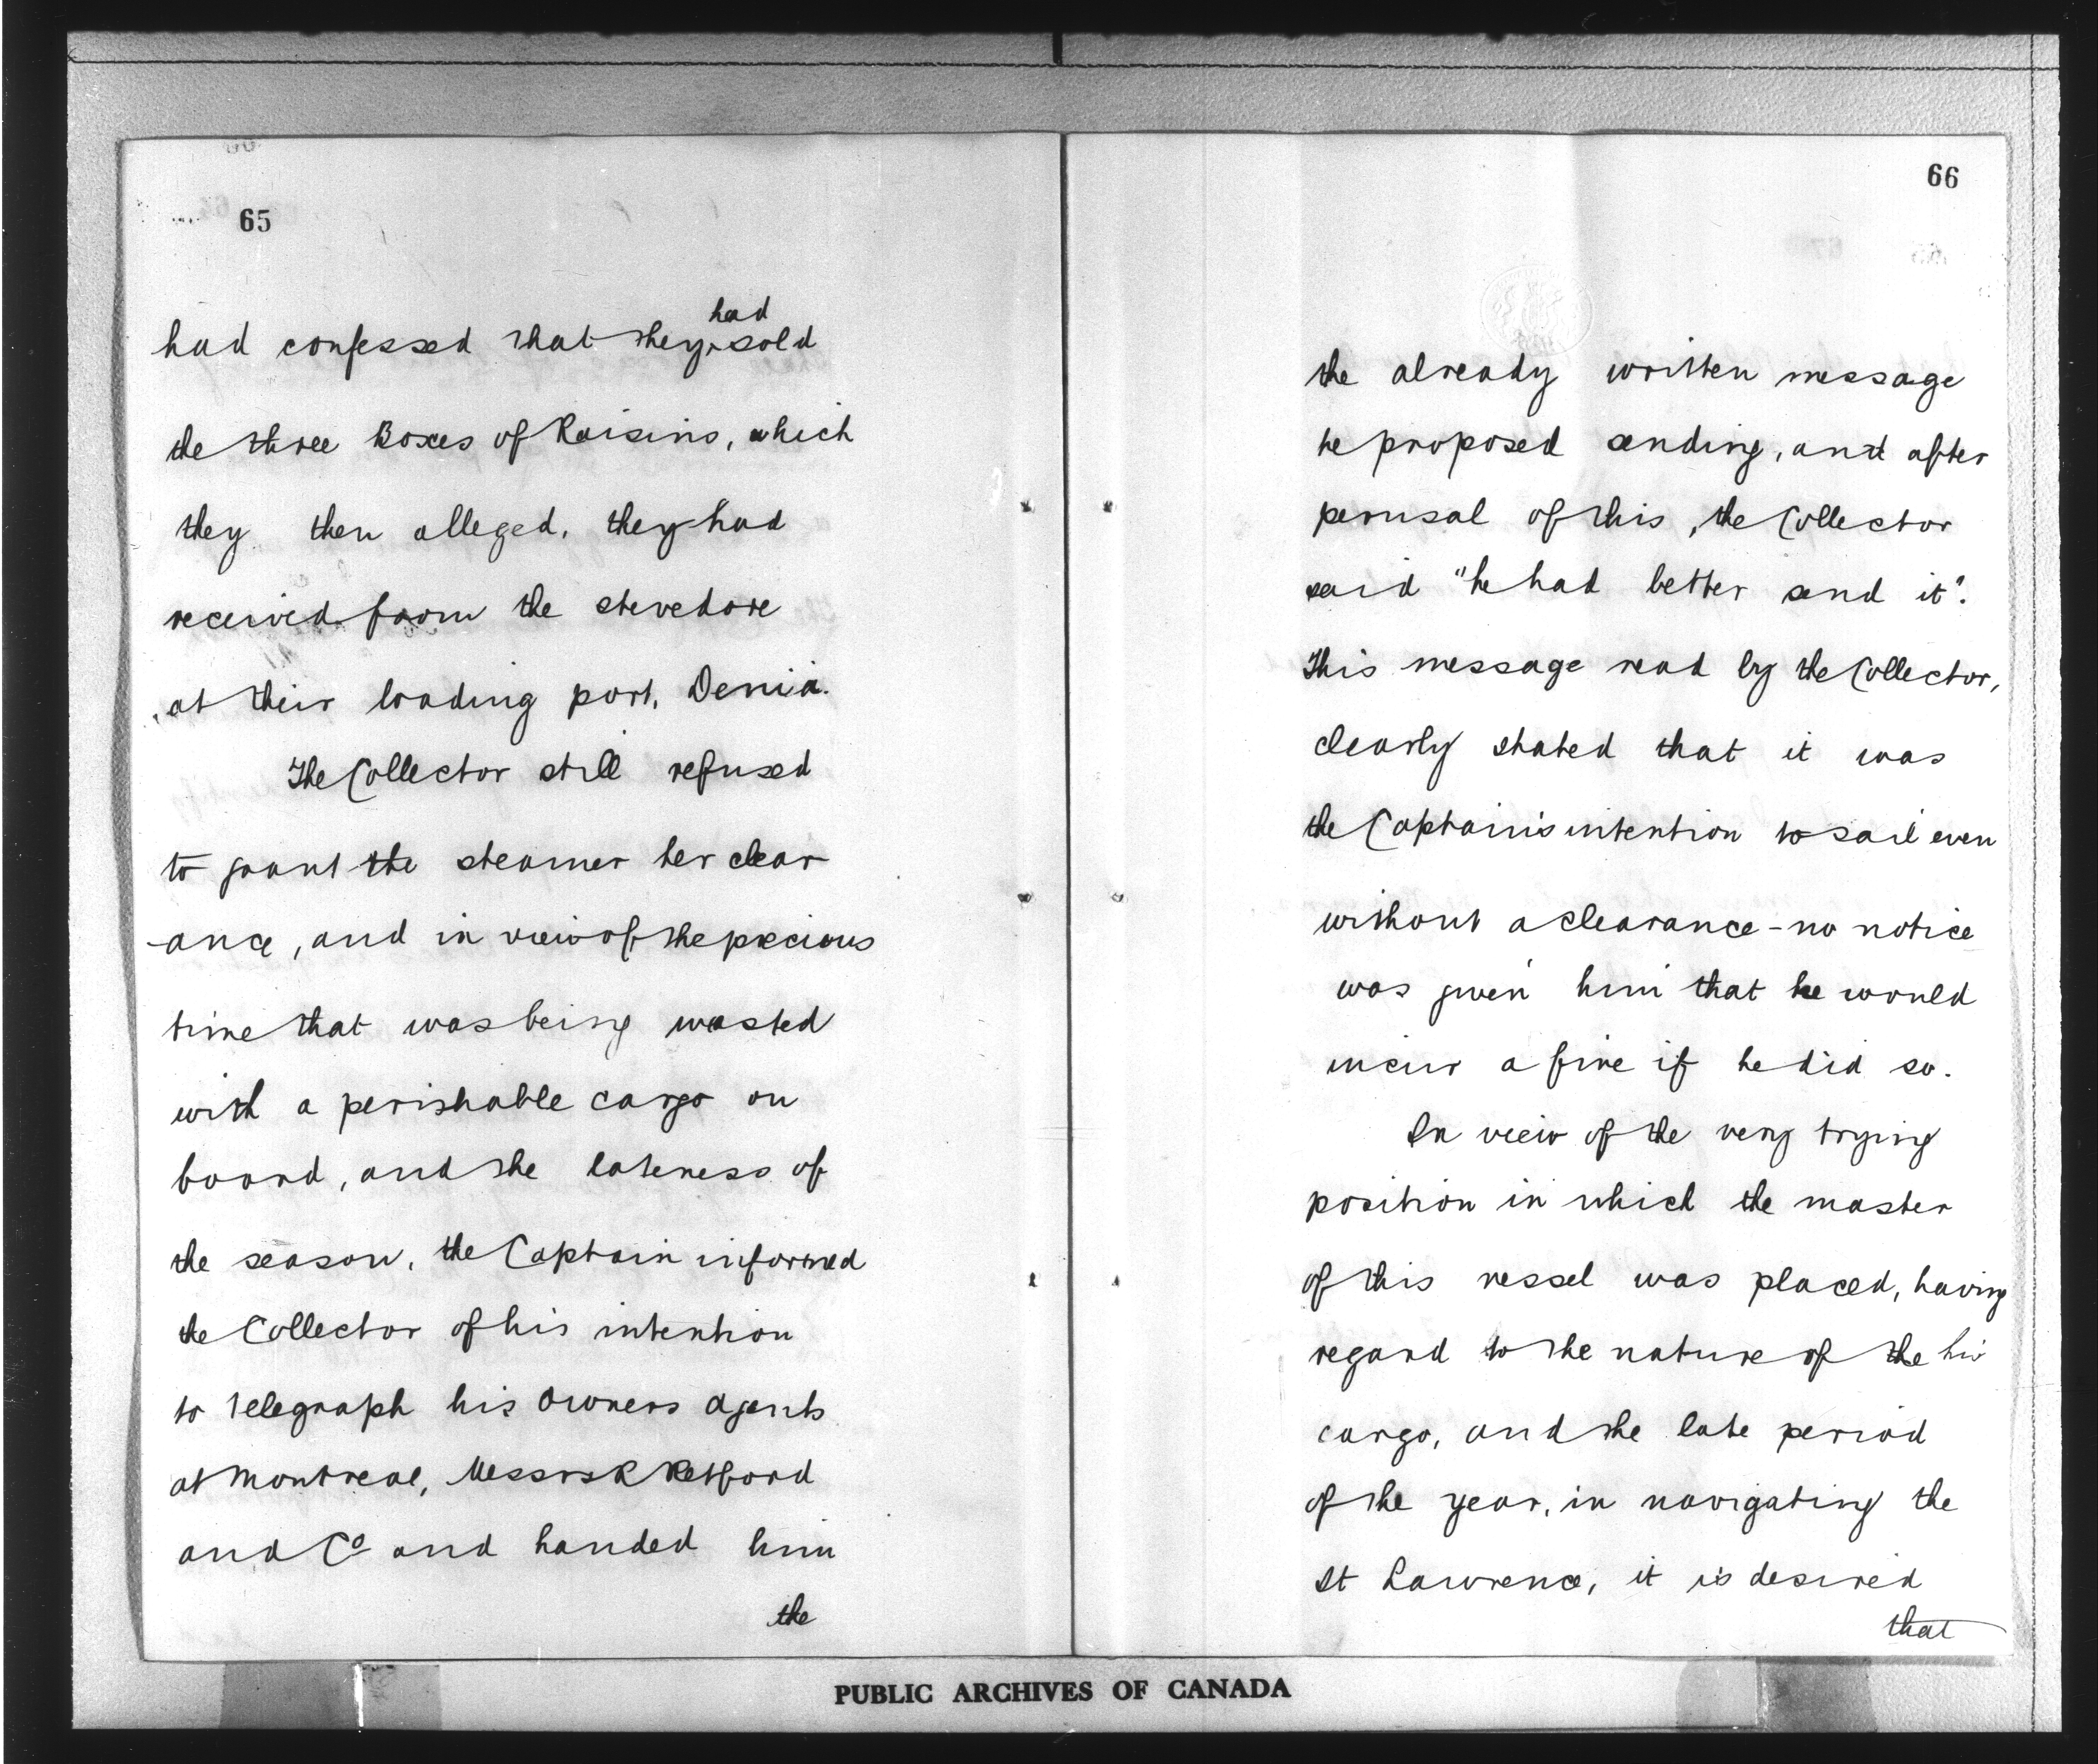 65
had confessed that they had sold
the three Boxes of Raisins, which
they then alleged, they had
received from the stevedore
at their loading port, Denia.
The Collector still refused
to grant the steamer her clear
-ance, and in view of the precious
time that was being wasted
with a perishable cargo on
board, and the lateness of
the season, the Captain informed
the Collector of his intention
to telegraph his Owners Agents
at Montreal, Messrs R Retford
and Co and handed him
the
66
the already written message
he proposed sending, and after
perusal of this, the Collector
said "he had better send it".
This message read by the Collector,
clearly stated that it was
the Captain's intention to sail even
without a clearance - no notice
was given him that he would
incur a fine if he did so.
In view of the very trying
position in which the master
of this vessel was placed, having
regard to the nature of the his
cargo, and the late period
of the year, in navigating the
St Lawrence, it is desired
that
PUBLIC ARCHIVES OF CANADA